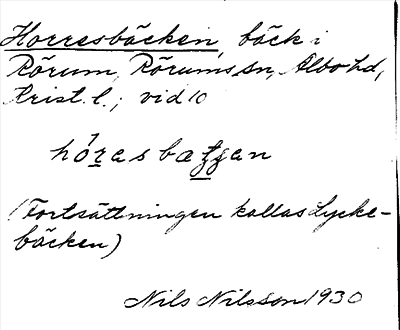 Horresbäcken, bäck i
Rörum, Rörums sn, Albo hd,
Krist. l.; vid 10
(Fortsättningen kallas Lycke-
bäcken)
Nils Nilsson 1930